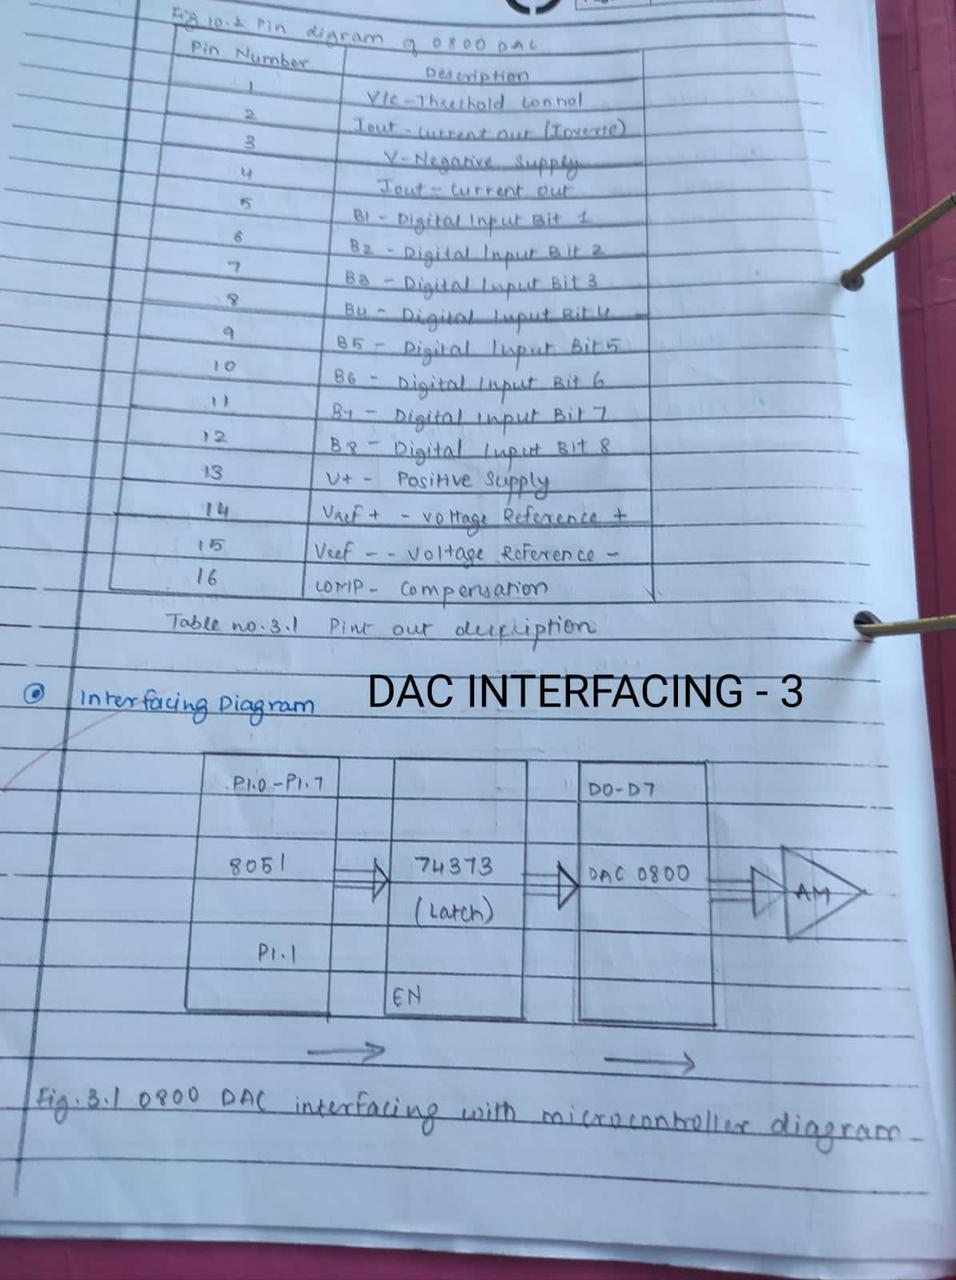 Fig 10.2 Pin digram of 0800 DAC
Pin Number Description
1 Vlc - Threshold connol
2 Iout - current out (Inverte)
3 V - Negative Supply
4 Iout - current out
5 B1 - Digital Input Bit 1
6 B2 - Digital Input Bit 2
7 B3 - Digital Input Bit 3
8 B4 - Digital Input Bit 4
9 B5 - Digital Input Bit 5
10 B6 - Digital Input Bit 6
11 B7 - Digital input Bit 7
12 B8 - Digital Input Bit 8
13 V+ - Positive Supply
14 Vref + - voltage Reference +
15 Vref - - voltage Reference -
16 COMP - Compensation
Table no. 3.1 Pint out
Interfacing Diagram
DAC INTERFACING - 3
P1.0 - P1.7 D0 - D7
8051 74373 DAC 0800 AM
(Latch)
P1.1
EN
Fig. 3.1 0800 DAC interfacing with microcontroller diagram -